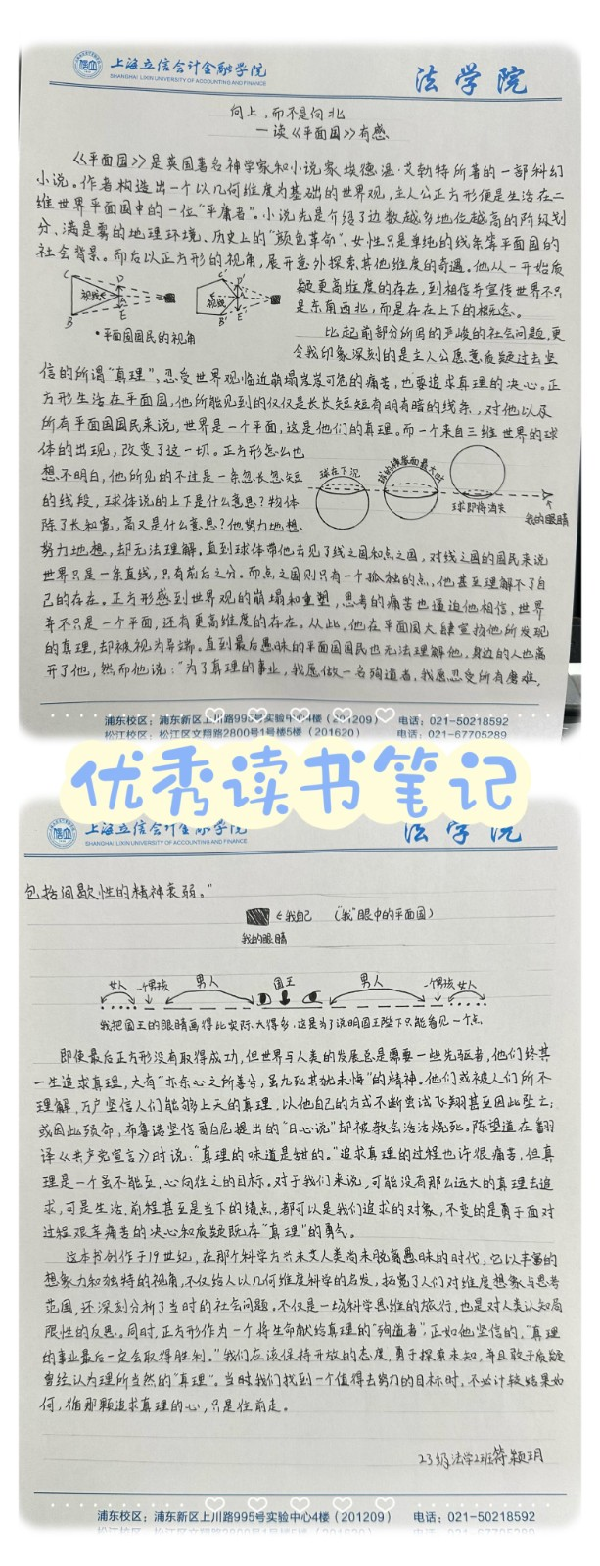 上海立信会计金融学院
SHANGHAI LIXIN UNIVERSITY OF ACCOUNTING AND FINANCE
法学院
向上,而不是向北
—读《平面国》有感
《平面国》是英国著名神学家和小说家埃德温·艾勃特所著的一部科幻
小说。作者构造出一个以几何维度为基础的世界观,主人公正方形便是生活在二
维世界平面国中的一位“平庸者”。小说先是介绍了边数越多地位越高的阶级划
分、满是雾的地理环境、历史上的“颜色革命”、女性只是单纯的线条等平面国的
社会背景。而后以正方形的视角,展开意外探索其他维度的奇遇。他从一开始质
疑更高维度的存在,到相信并宣传世界不只
是东南西北,而是存在上下的概念。
C
D
视线
B
E
C'
D'
视线
B'
E'
•平面国国民的视角
比起前部分所写的严峻的社会问题,更
令我印象深刻的是主人公愿意质疑过去坚
信的所谓“真理”、忍受世界观临近崩塌岌岌可危的痛苦,也要追求真理的决心。正
方形生活在平面国,他所能见到的仅仅是长长短短有明有暗的线条,对他以及
所有平面国国民来说,世界是一个平面,这是他们的真理。而一个来自三维世界的球
体的出现,改变了这一切。正方形怎么也
想不明白,他所见的不过是一条忽长忽短
的线段,球体说的上下是什么意思?物体
除了长和宽,高又是什么意思?他努力地想,
球在下沉
球的横截面最大时
球即将消失
我的眼睛
努力地想,却无法理解。直到球体带他去见了线之国和点之国,对线之国的国民来说
世界只是一条直线,只有前后之分。而点之国则只有一个孤独的点,他甚至理解不了自
己的存在。正方形感到世界观的崩塌和重塑,思考的痛苦也逼迫他相信,世界
并不只是一个平面,还有更高维度的存在。从此,他在平面国大肆宣扬他所发现
的真理,却被视为异端。直到最后愚昧的平面国国民也无法理解他,身边的人也离
开了他,然而他说:“为了真理的事业,我愿做一名殉道者,我愿忍受所有磨难,
浦东校区:浦东新区上川路995号实验中心4楼(201209) 电话:021-50218592
松江校区:松江区文翔路2800号1号楼5楼(201620) 电话:021-67705289
优秀读书笔记
上海立信会计金融学院
SHANGHAI LIXIN UNIVERSITY OF ACCOUNTING AND FINANCE
法学院
包括间歇性的精神衰弱。”
←我自己 (“我”眼中的平面国)
我的眼睛
女人 一个男孩 男人 国王 男人 一个男孩 女人
我把国王的眼睛画得比实际大得多,这是为了说明国王陛下只能看见一个点
即使最后正方形没有取得成功,但世界与人类的发展总是需要一些先驱者,他们终其
一生追求真理,大有“亦余心之所善兮,虽九死其犹未悔”的精神。他们或被人们所不
理解,万户坚信人们能够上天的真理,以他自己的方式不断尝试飞翔甚至因此坠亡;
或因此殒命,布鲁诺坚信哥白尼提出的“日心说”却被教会活活烧死。陈望道在翻
译《共产党宣言》时说:“真理的味道是甜的。”追求真理的过程也许很痛苦,但真
理是一个虽不能至,心向往之的目标。对于我们来说,可能没有那么远大的真理去追
求,可是生活、前程甚至是当下的绩点,都可以是我们追求的对象,不变的是勇于面对
过程艰辛痛苦的决心和质疑既存“真理”的勇气。
这本书创作于19世纪,在那个科学方兴未艾人类尚未脱离愚昧的时代,它以丰富的
想象力和独特的视角,不仅给人以几何维度科学的启发,拓宽了人们对维度想象与思考
范围,还深刻分析了当时的社会问题。不仅是一场科学思维的旅行,也是对人类认知局
限性的反思。同时,正方形作为一个将生命献给真理的“殉道者”,正如他坚信的,“真理
的事业最后一定会取得胜利。”我们应该保持开放的态度,勇于探索未知,并且敢于质疑
曾经认为理所当然的“真理”。当时我们找到一个值得去努力的目标时,不必计较结果如
何,循那颗追求真理的心,只是往前走。
23级法学2班符颖玥
浦东校区:浦东新区上川路995号实验中心4楼(201209) 电话:021-50218592